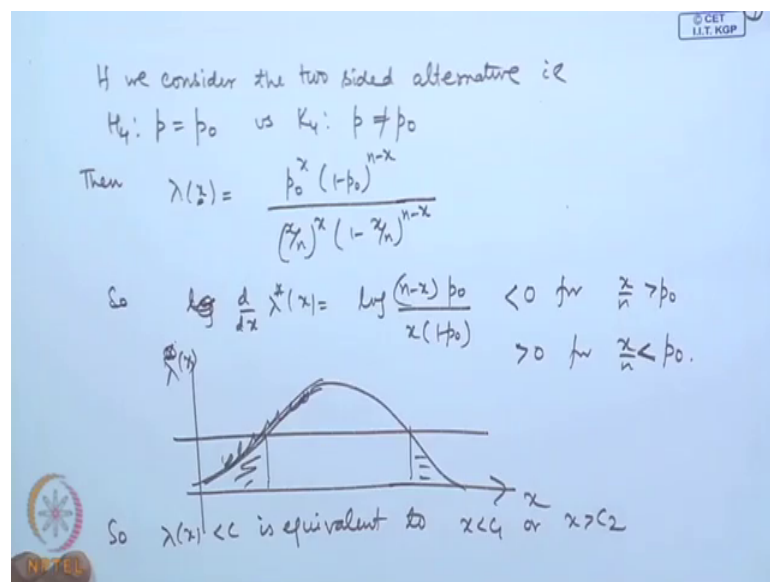 © CET
I.I.T. KGP
If we consider the two sided alternative ie
H₄: p = p₀ vs K₄: p ≠ p₀
Then λ(x) = p₀^x (1-p₀)^{n-x} / (x/n)^x (1-x/n)^{n-x}
So d/dx λ*(x) = log (n-x) p₀ / x(1-p₀) <0 for x/n > p₀
>0 for x/n < p₀.
λ(x)
x
So λ(x) < c is equivalent to x<c₁ or x>c₂
NPTEL